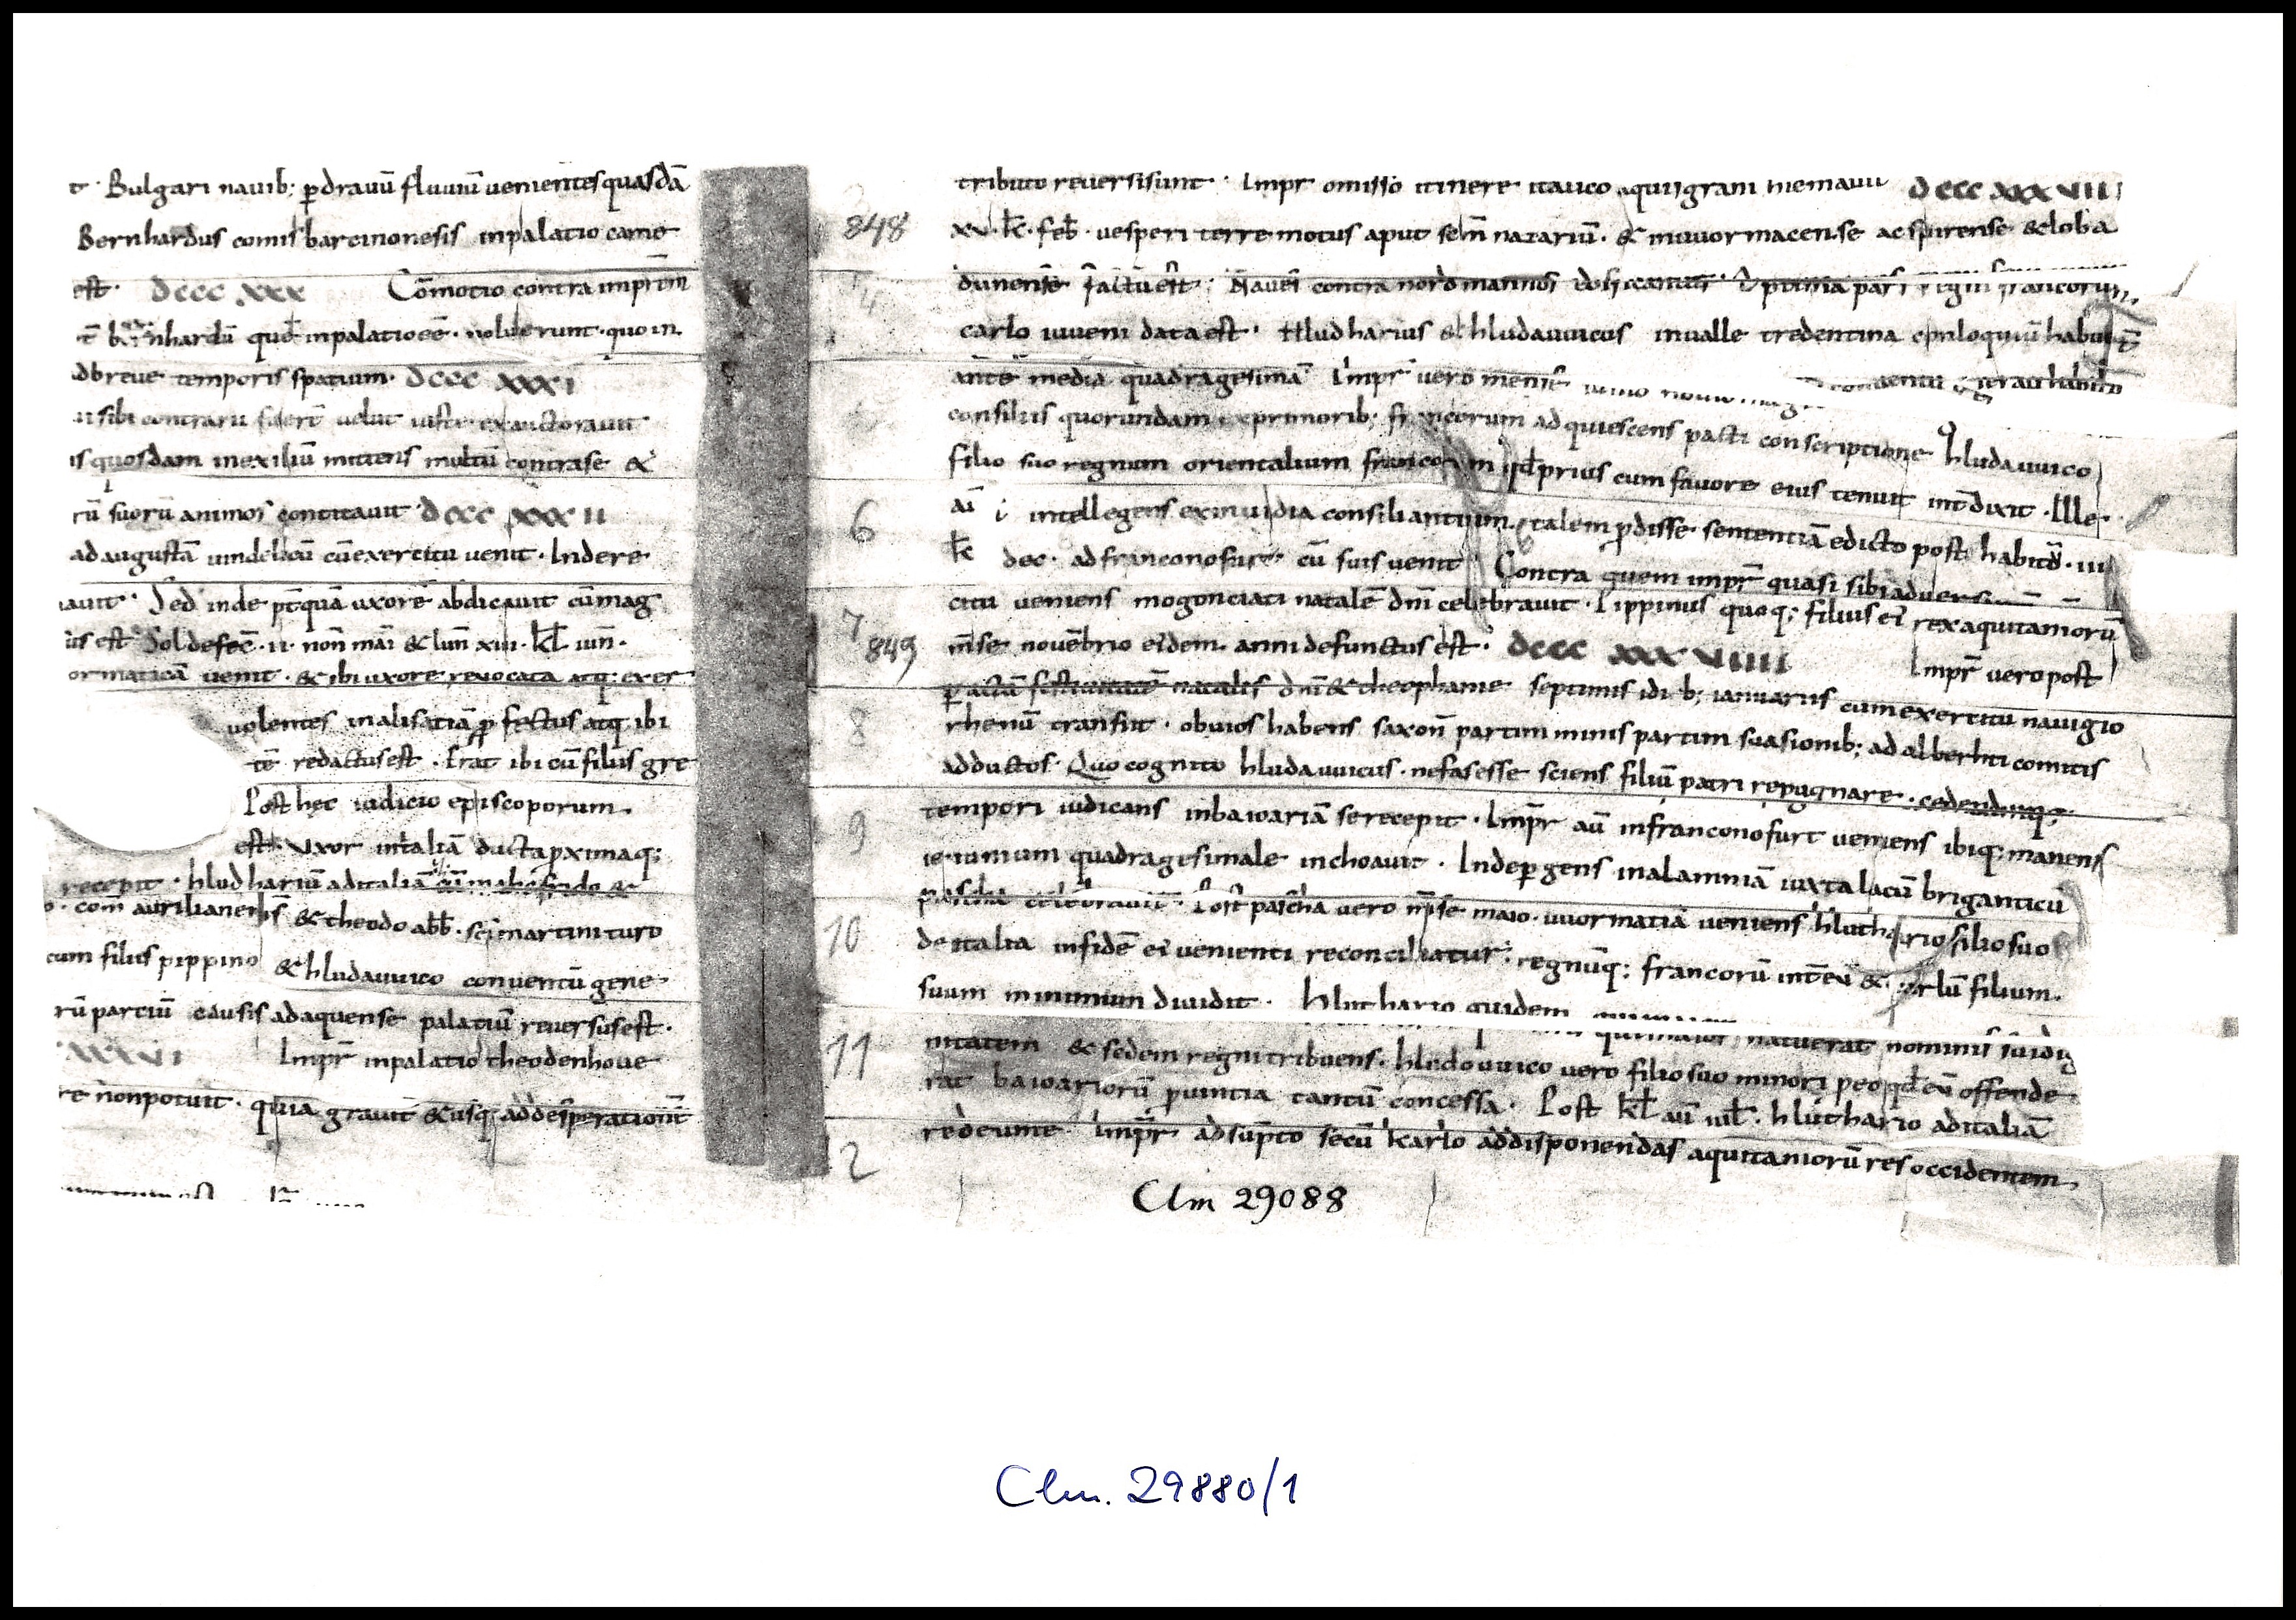 t · Bulgari nauib; p̄ drauū fluuiū uenientes quasdā
Bernhardus comis barcinonesis inpalatio came
est · dccc xxx Cōmotio contra imp
bernhardū quē inpalatio eē · noluerunt · quo in
adbreue temporis spatium · dccc xxxi
sibi contrarii uelut iuste exauctorauit
is quosdam inexiliū mittens multū contrase &
rū suorū animos contitauit dccc xxx ii
ad augustā uindelicū cū exercitu uenit · Indere
auit · Sed inde ptquā uxorē abdicauit cū mag
us est Sol defec̄ · ii · non̄ mai & lun̄ xiii · kl iun̄ ·
ormaticā uenit · & ibi uxore reuocata atq; exer
uolentes inalisatiā p fectus atq; ibi
tē redactus est · Erat ibi cū filiis gre
Post hec iudicio episcoporum ·
est · Uxor initaliā ducta pximaq;
recepit · hludhariū ad italiā cū mahtfrido &
com̄ aurilianensis & theodo abb̄ · sci martini turo
cum filiis pippino & hludauuico conuentū gene
rū partiū causis adaquense palatiū reuersus est ·
xxxvi Impr̄ inpalatio theodenhoue
re nonpotuit · quia grauit & usq; addesperationē
848
6
7
849
8
9
10
11
12
tributo reuersi sunt · Impr̄ omisso itinere italico aquisgrani hiemauit dccc xxx viii
xv · k̄ · feb̄ · uesperi terre motus aput scm̄ nazariū · & inuuormacense ac spirense & loba
dunense factū est · Naues contra nordmannos edificantur · Optima pars regni francorum
carlo iuueni data est · Hludharius & hludauuicus inualle tredentina conloquiū habuert̄
ante mediā quadragesimā Impr̄ uero mense habito
consiliis quorundam exprimorib; francorum adquiescens pacti conscriptione hludauuico
filio suo regnum orientalium francorum qd̄ prius cum fauore eius tenuit int̄dixit · Ille ·
intellegens exinuidia consiliantium talem p̄disse sententiā edicto posthabito · iii
k̄ dec · ad franconofurt cū suis uenit Contra quem impr̄ quasi sibi aduers
citu ueniens mogonciaci natalē dn̄i celebrauit · Pippinus quoq; filius ei rex aquitaniorū
mn̄se nouēbrio eidem anni defunctus est · dccc xxx viiii Impr̄ uero post
p̄actā festiuitatē natalis dn̄i & theophanie septimis idib; ianuariis cum exercitu nauigio
rhenū transiit · obuios habens saxon̄ partim minis partim suasionib; adalberhti comitis
adductos · Quo cognito hludauuicus · nefas esse sciens filiū patri repugnare · cedendumq;
tempori iudicans inbaioariā se recepit · Impr̄ aū infranconofurt ueniens ibiq; manens
ieiunium quadragesimale inchoauit · Indep̄gens inalamniā iuxta lacū briganticū
pascha celebrauit · Post pascha uero mn̄se maio · uuormatiā ueniens hluthario filio suo
deitalia infidē ei uenienti reconciliatur · regnūq; francorū int̄ eū & carlū filium ·
suum minimum diuidit · hluthario quidem natuerat nominis sui dig
nitatem & sedem regni tribuens · hludouuico uero filio suo minori p eo qd̄ eū offende
rat baioariorū puintia tantū concessa · Post kl̄ aū iul̄ · hluthario ad italiā
redeunte Impr̄ adsūpto secū karlo addisponendas aquitaniorū res occidentem
Clm 29088
Clm. 29880/1